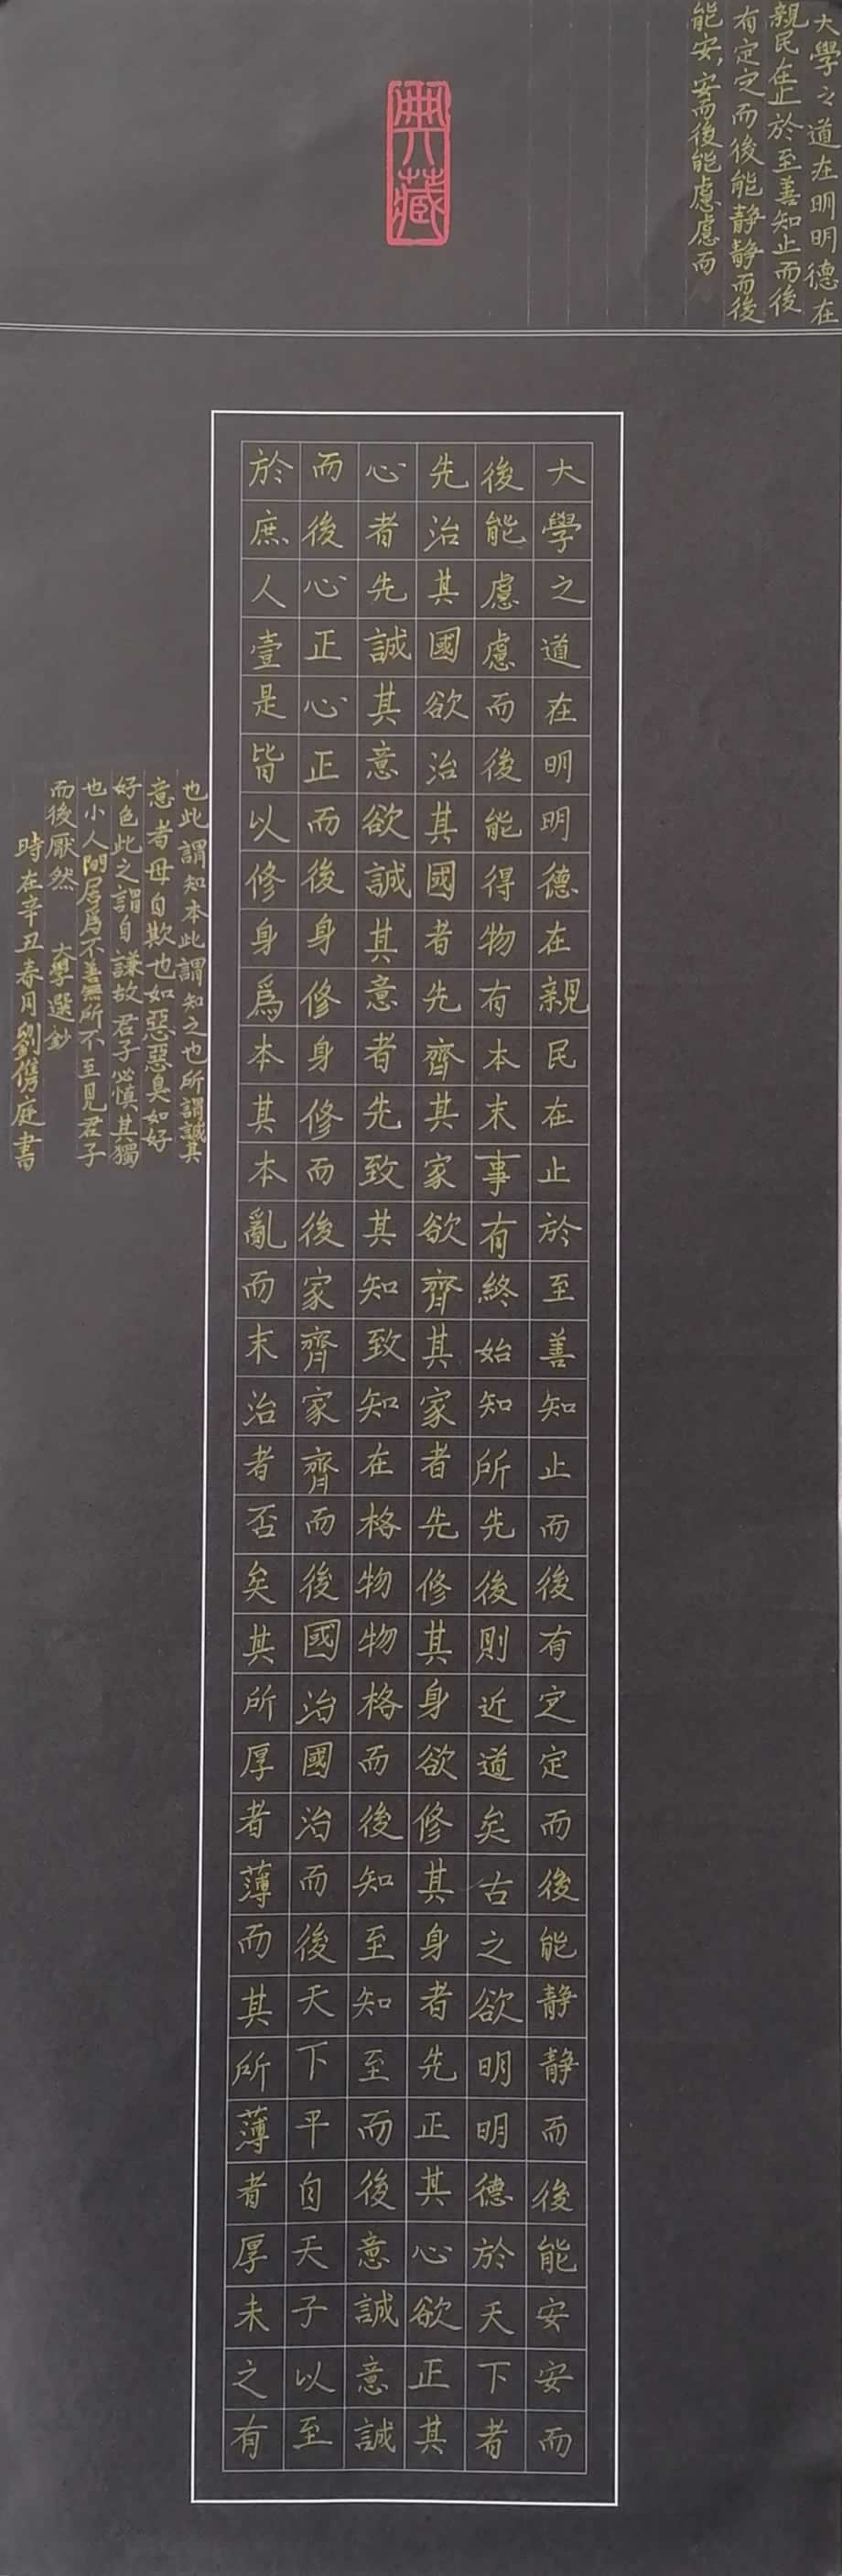 大學之道在明明德在
親民在止於至善知止而後
有定定而後能靜靜而後
能安,安而後能慮慮而
典藏
大學之道在明明德在親民在止於至善知止而後有定定而後能靜靜而後能安安而
後能慮慮而後能得物有本末事有終始知所先後則近道矣古之欲明明德於天下者
先治其國欲治其國者先齊其家欲齊其家者先修其身欲修其身者先正其心欲正其
心者先誠其意欲誠其意者先致其知致知在格物物格而後知至知至而後意誠意誠
而後心正心正而後身修身修而後家齊家齊而後國治國治而後天下平自天子以至
於庶人壹是皆以修身爲本其本亂而末治者否矣其所厚者薄而其所薄者厚未之有
也此謂知本此謂知之也所謂誠其
意者毋自欺也如惡惡臭如好
好色此之謂自謙故君子必慎其獨
也小人閒居爲不善無所不至見君子
而後厭然 大學選鈔
時在辛丑春月劉儁庭書